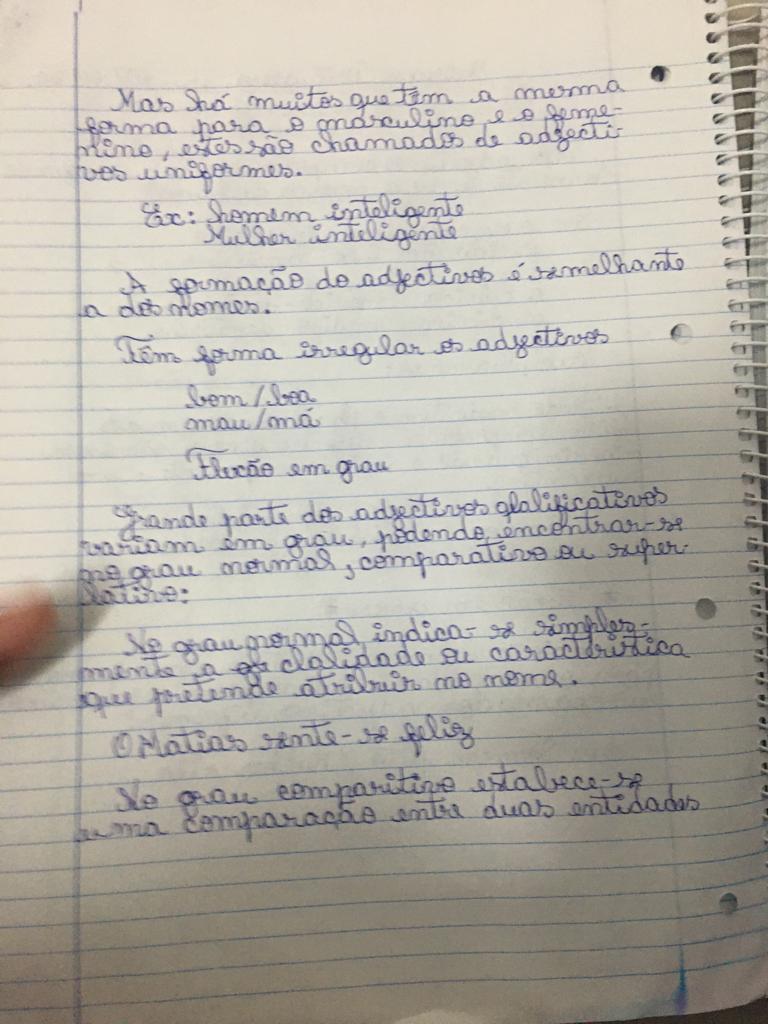 Mas há muitos que têm a mesma
forma para o masculino e o feme-
nino, estes são chamados de adjecti-
vos uniformes.
Ex: homem inteligente
Mulher inteligente
A formação do adjectivos é semelhante
a dos nomes.
Têm forma irregular os adjectivos
bom/boa
mau/má
Flecão em grau
Grande parte dos adjectivos qlalificativos
variam em grau, podendo encontrar-se
no grau normal, comparativo ou super-
lativo:
No grau normal indica-se simples-
mente a clalidade ou característica
que pretende atribuir no nome.
O Matias sente-se feliz
No grau comparitivo estabece-se
uma comparação entre duas entidades